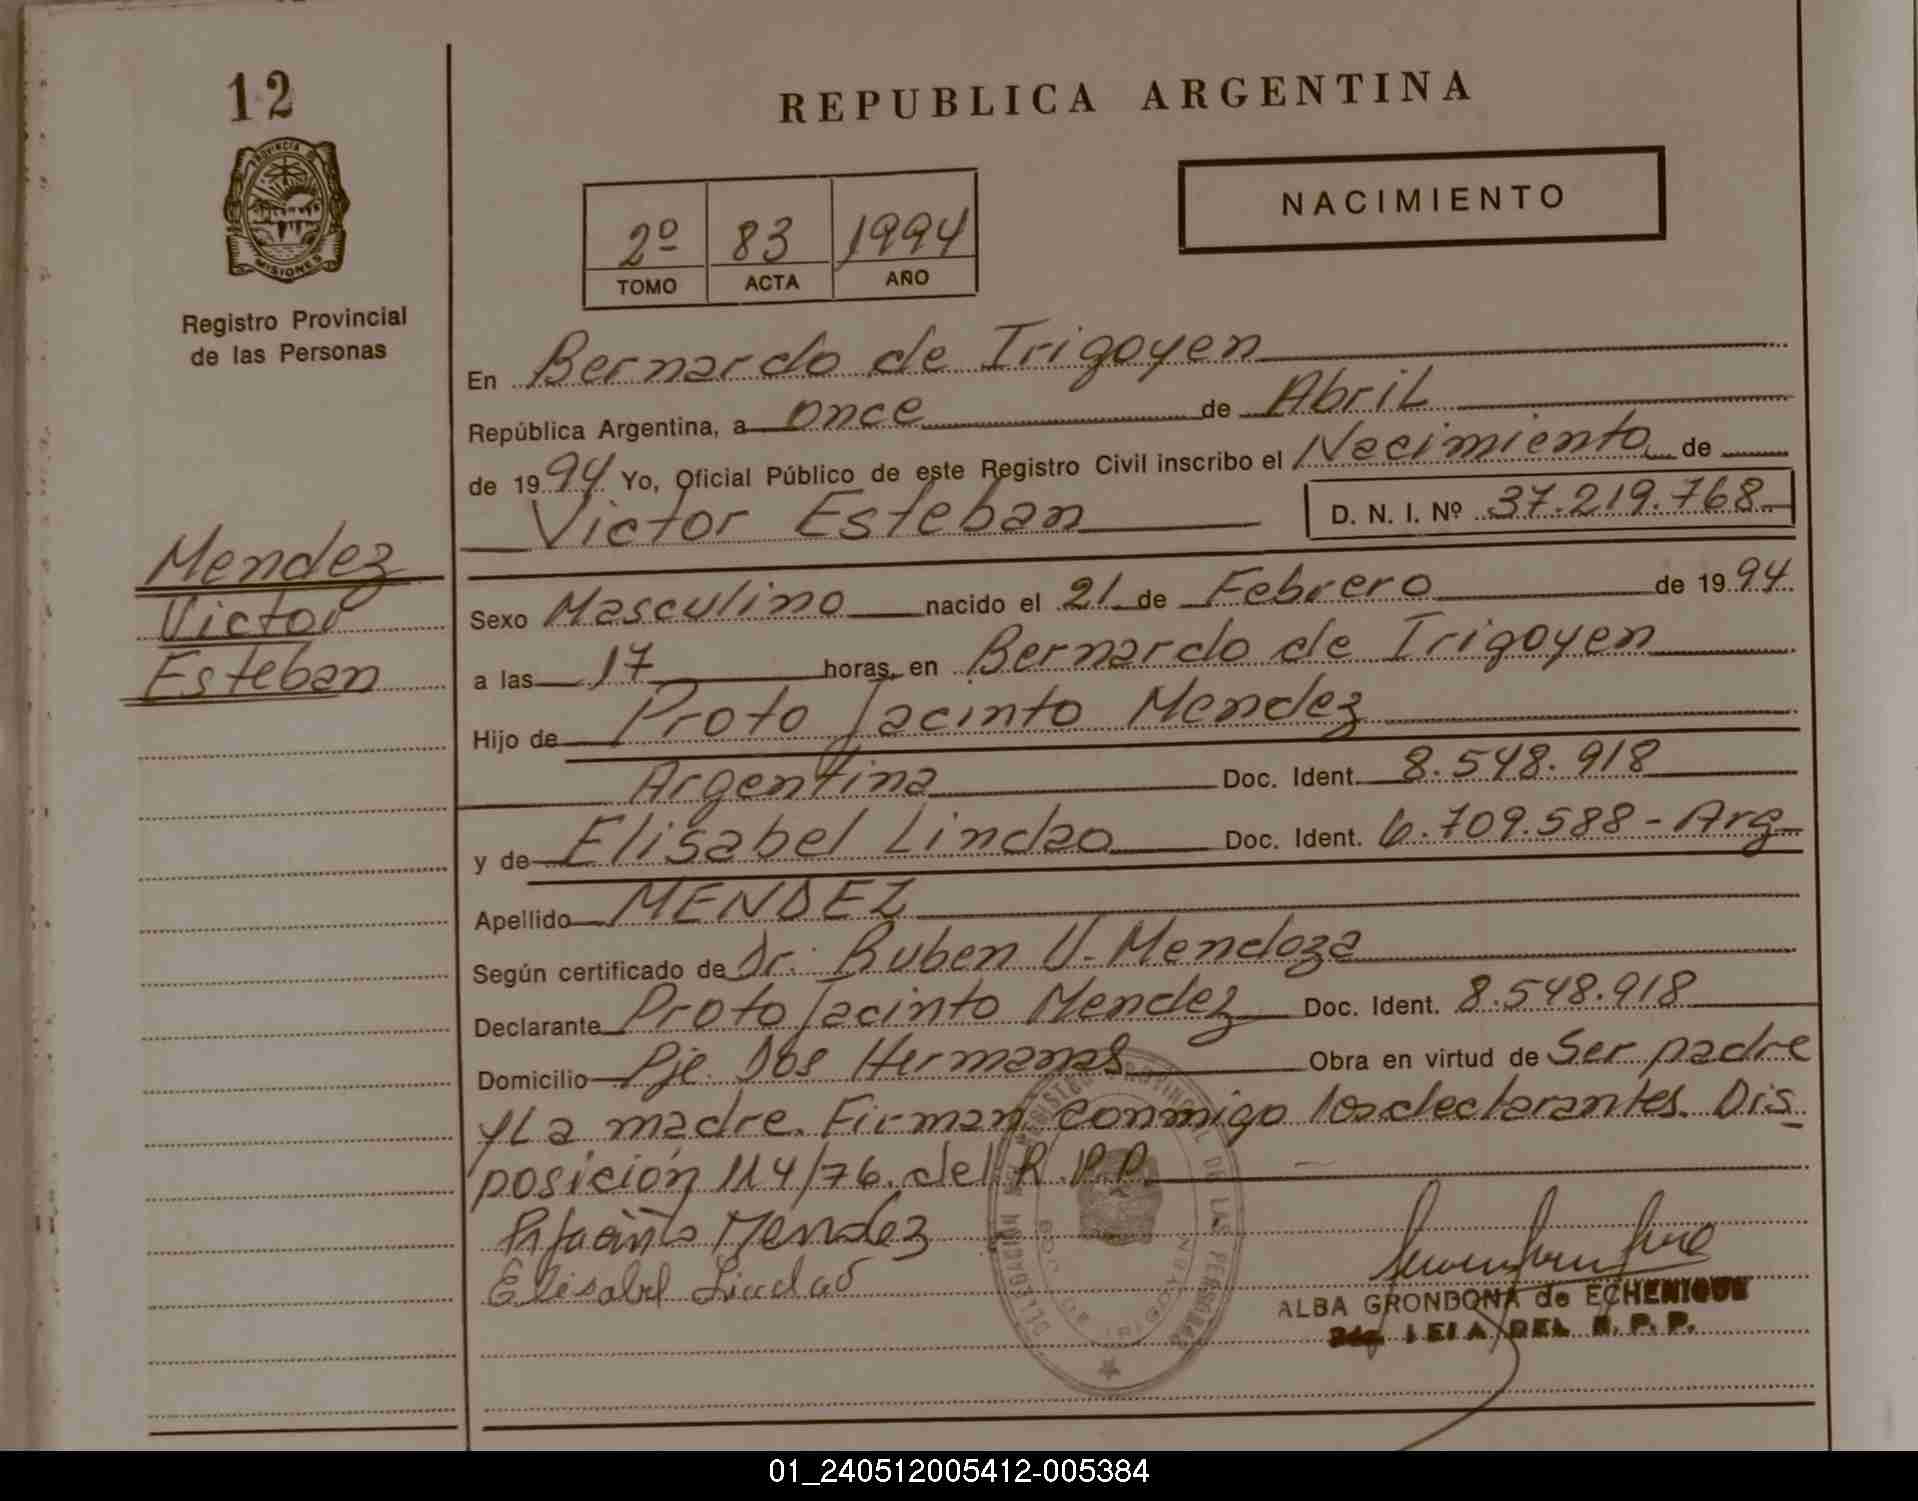 12
REPUBLICA ARGENTINA
PROVINCIA DE
MISIONES
NACIMIENTO
2º 83 1994
TOMO ACTA AÑO
Registro Provincial
de las Personas
En Bernardo de Irigoyen
República Argentina, a once de Abril
de 1994 Yo, Oficial Público de este Registro Civil inscribo el Nacimiento de
Victor Esteban D. N. I. Nº 37.219.768
Mendez
Victor
Esteban
Sexo Masculino nacido el 21 de Febrero de 1994
a las 17 horas, en Bernardo de Irigoyen
Hijo de Proto Jacinto Mendez
Argentina Doc. Ident. 8.548.918
y de Elisabel Lindao Doc. Ident. 6.709.588-Arg
Apellido MENDEZ
Según certificado de Dr. Ruben U. Mendoza
Declarante Proto Jacinto Mendez Doc. Ident. 8.548.918
Domicilio Pje. Dos Hermanas Obra en virtud de Ser padre
y La madre. Firman conmigo los declarantes. Dis
posición 114/76. del R.P.P.
Mendez
Elisabel Lindao
DELEGACION REGISTRO PROVINCIAL DE LAS PERSONAS
ALBA GRONDONA de ECHENIQUE
DEL R. P. P.
01_240512005412-005384